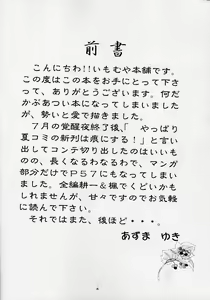 前書
こんにちわ!!いもむや本舗です。
この度はこの本をお手にとって下さ
って、ありがとうございます。何だ
かぶあつい本になってしまいました
が、勢いと愛で描きました。
7月の覚醒夜終了後、「やっぱり
夏コミの新刊は痕にする!」と言い
出してコンテ切り出したのはいいも
のの、長くなるわなるわで、マンガ
部分だけでP57にもなってしまい
ました。全編耕一&楓でくどいかも
しれませんが、甘々ですのでお気軽
に読んで下さい。
それではまた、後ほど・・・。
あずま ゆき